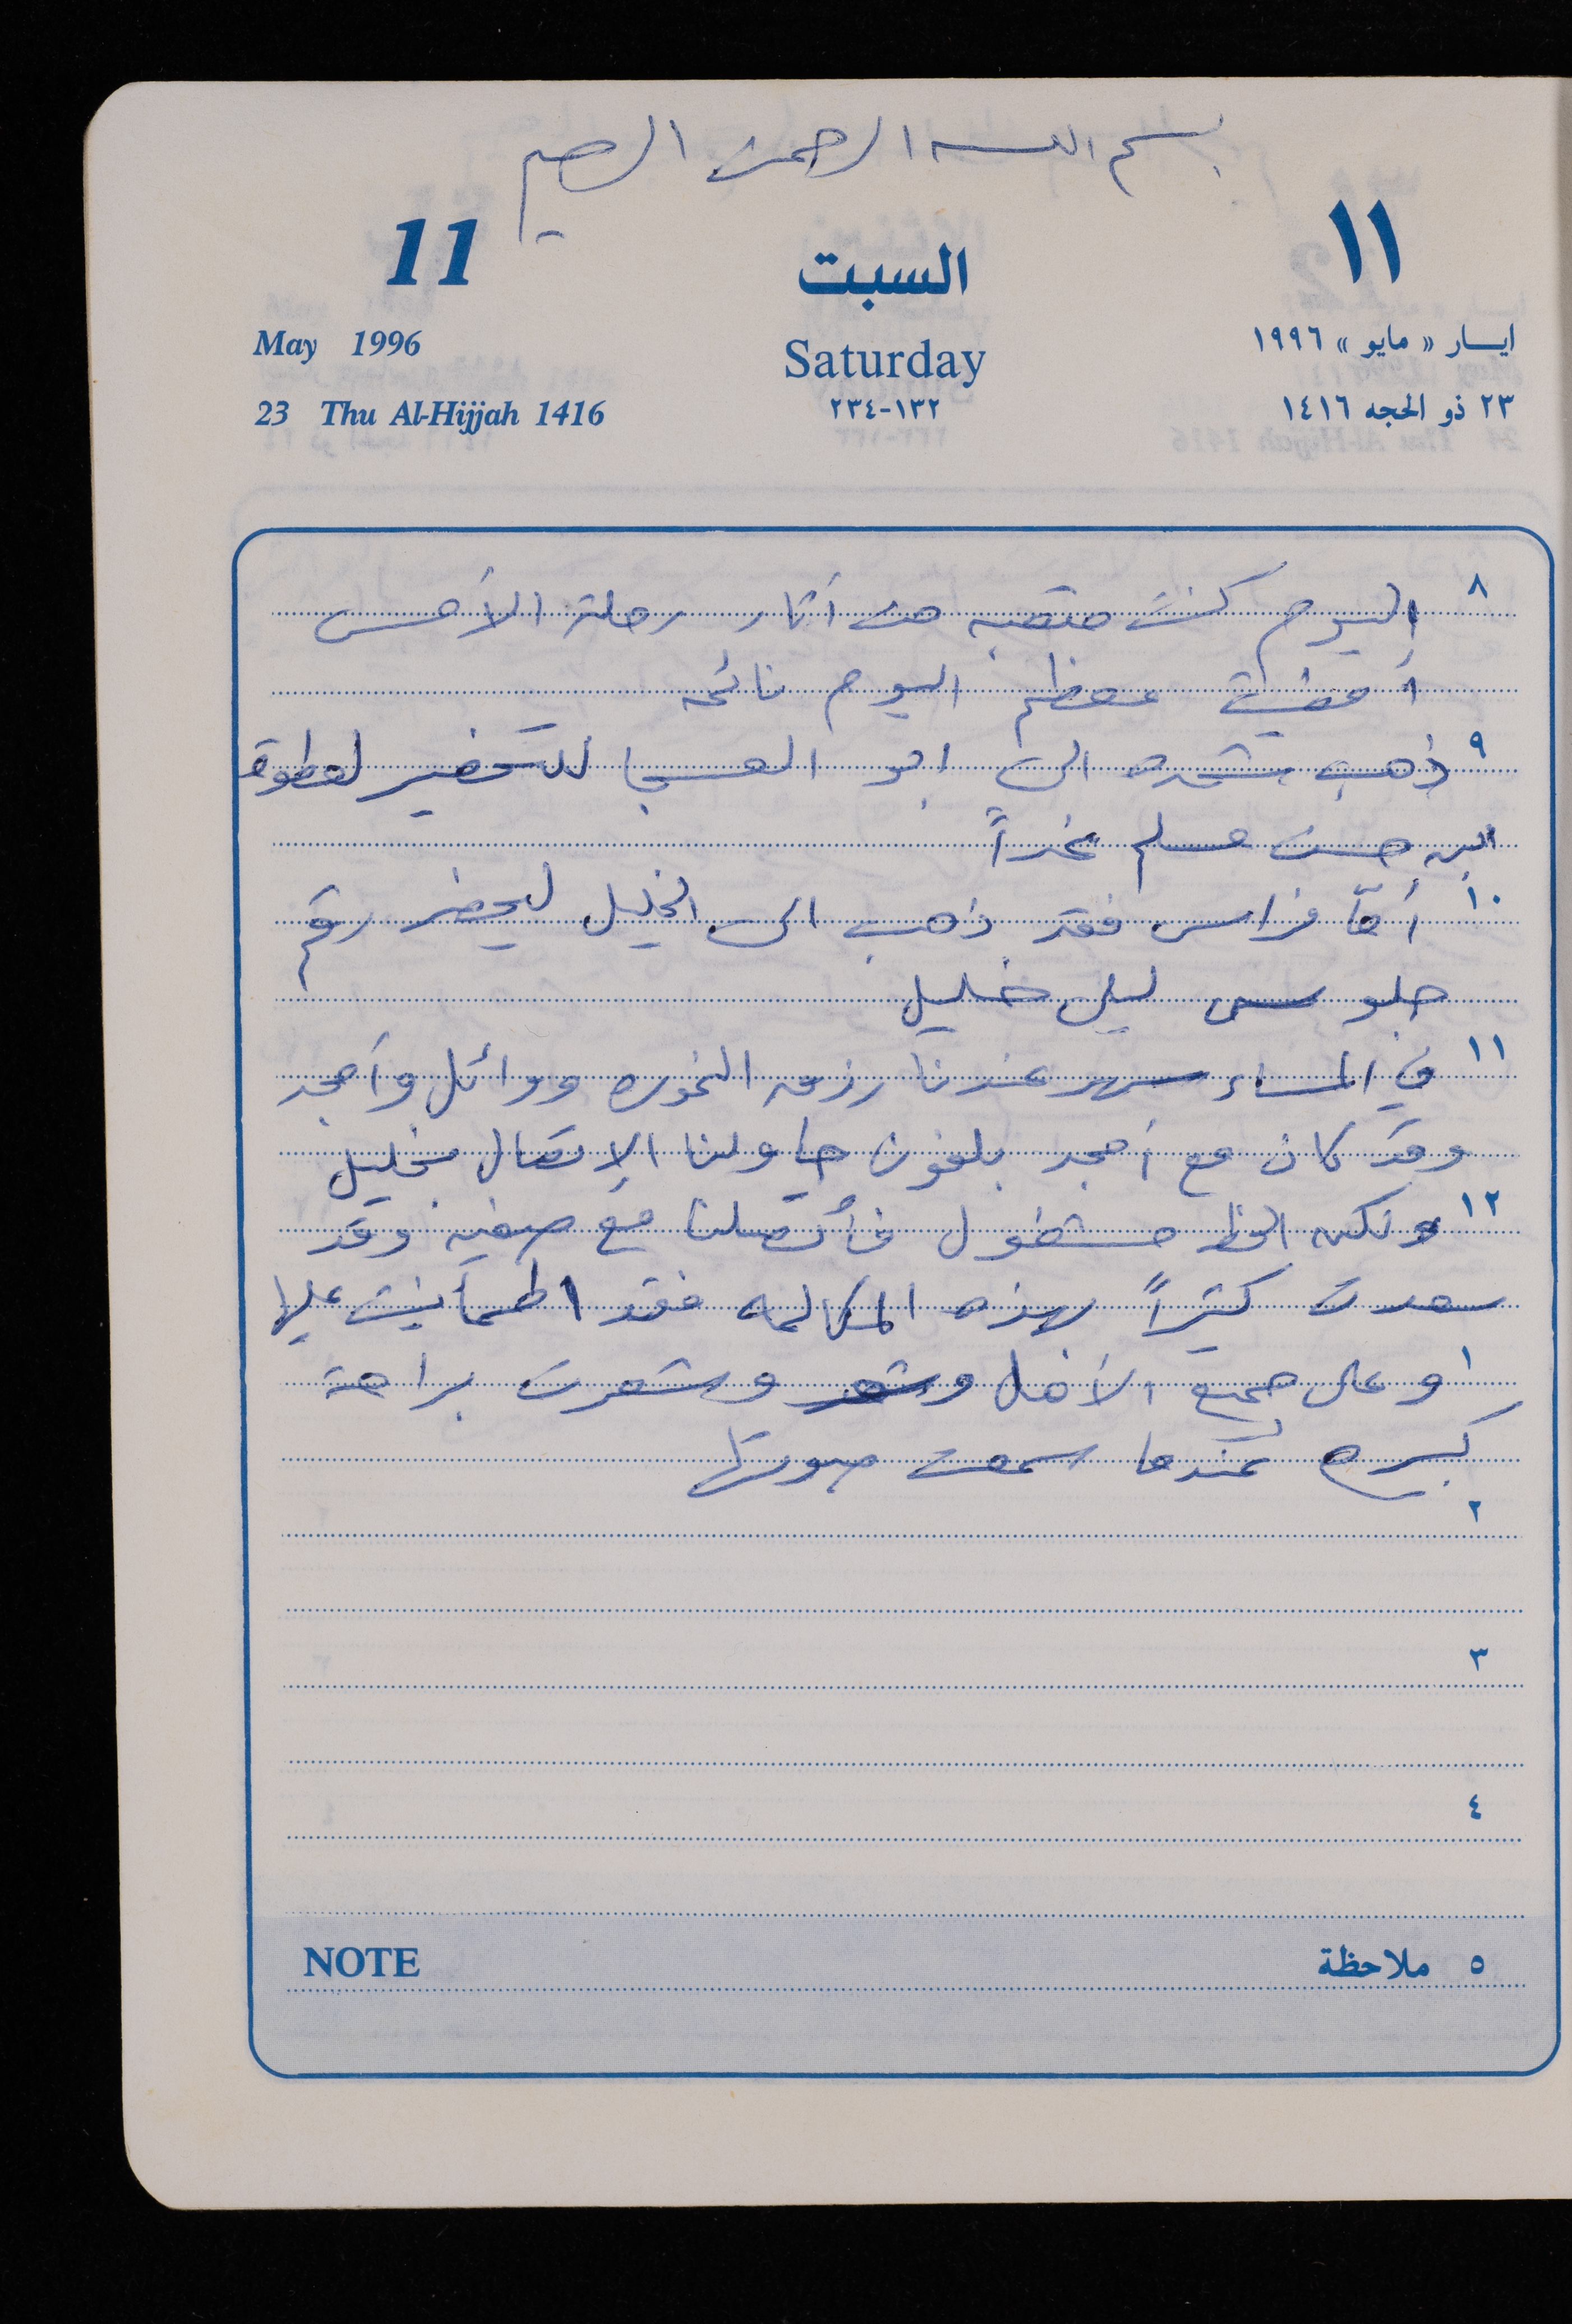 بسم الله الرحمن الرحيم
11 السبت ١١
May 1996 Saturday ايـسـار « مايو » ١٩٩٦
23 Thu Al-Hijjah 1416 ١٣٢-٢٣٤ ٢٣ ذو الحجه ١٤١٦
٨ اليوم كنت متعبه من أثار رحلة الأمس
أمضيت معظم اليوم نائمه
٩ ذهب شحده الى ابو العسجا للتحضير لعطوة
ابن حسن مسلم غداً
١٠ أمّا فراس فقد ذهب الى الخليل ليحضر رقم
جلوس ليلى خليل
١١ في المساء سهر عندنا رزمه النخوره ووائل وأمجد
وقد كان مع أمجد بلفون حاولنا الإتصال بخليل
١٢ ولكن الخط مشغول فأتصلنا مع صفيه وقد
سعدت كثيراً بهذه المكالمه فقد اطمأنيت عليها
١ وعلى جميع الأهل وشعر وشعرت براحة
كبيره عندما سمعت صوتها
٢
٣
٤
NOTE ٥ ملاحظة